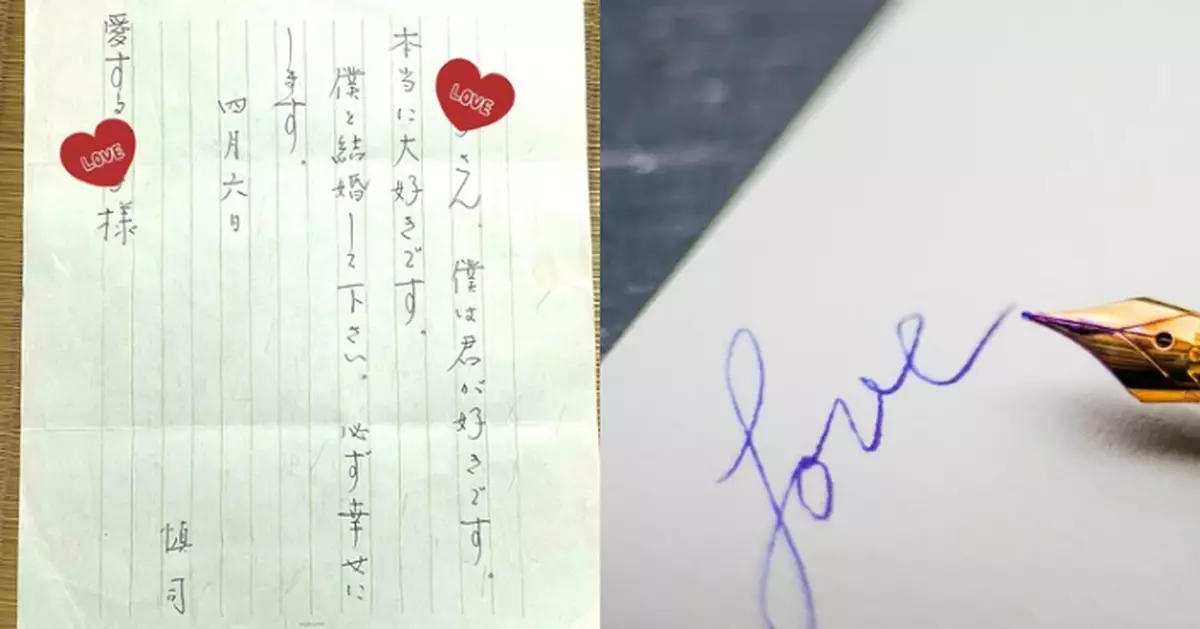 さん、僕は君が好きです。
本当に大好きです。
僕と結婚して下さい。必ず幸せに
します。
四月六日
慎司
愛する
様
LOVE
LOVE
love